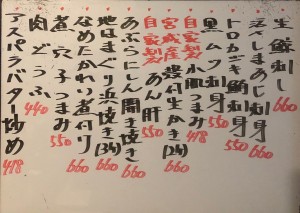 生鯨刺し 660
活〆しまあじ刺身 660
トロカジキ鮪刺身 550
黒ムツ刺身 550
自家製 小肌つまみ 418
宮城産 殻付生かき(3ケ) 660
自家製 あん肝 550
あぶらにしん開き焼き 660
地はまぐり浜焼き(3ケ) 660
なめたかれい煮付け 660
煮穴子つまみ 550
肉どうふ 440
アスパラバター炒め 418